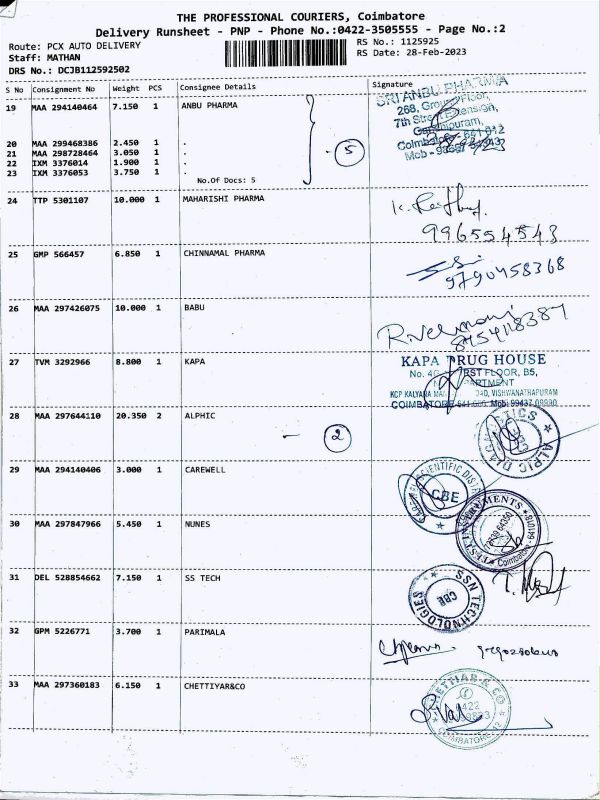 THE PROFESSIONAL COURIERS, Coimbatore
Delivery Runsheet - PNP - Phone No.:0422-3505555 - Page No.:2
Route: PCX AUTO DELIVERY
RS No.: 1125925
Staff: MATHAN
RS Date: 28-Feb-2023
DRS No.: DCJB112592502
S No Consignment No Weight PCS Consignee Details Signature
19 MAA 294140464 7.150 1 ANBU PHARMA
SRI ANBU PHARMA
268, Group Floor,
7th Street Extension,
20 MAA 299468386 2.450 1 .
21 MAA 298728464 3.050 1 .
22 IXM 3376014 1.900 1 .
23 IXM 3376053 3.750 1 .
5
No.Of Docs: 5
24 TTP 5301107 10.000 1 MAHARISHI PHARMA
9965554543
25 GMP 566457 6.850 1 CHINNAMAL PHARMA
9790458368
26 MAA 297426075 10.000 1 BABU
8754118387
27 TVM 3292966 8.800 1 KAPA
KAPA DRUG HOUSE
28 MAA 297644110 20.350 2 ALPHIC
- 2
ALPIC DIAGNOSTICS
29 MAA 294140406 3.000 1 CAREWELL
CBE
30 MAA 297847966 5.450 1 NUNES
31 DEL 528854662 7.150 1 SS TECH
SSN TECHNOLOGIES
CBE
32 GPM 5226771 3.700 1 PARIMALA
33 MAA 297360183 6.150 1 CHETTIYAR&CO